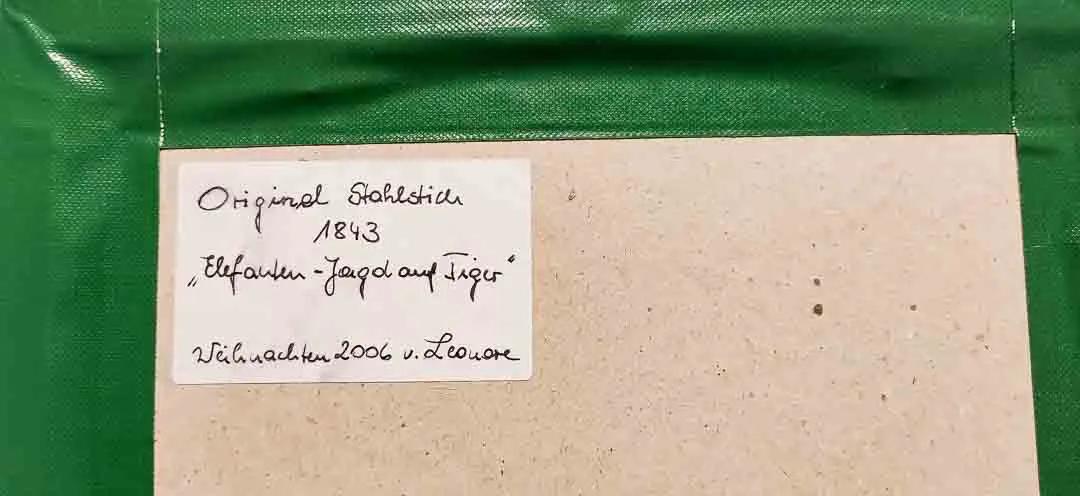 Original Stahlstich
1843
„Elefanten-Jagd auf Tiger“
Weihnachten 2006 v. Leonore